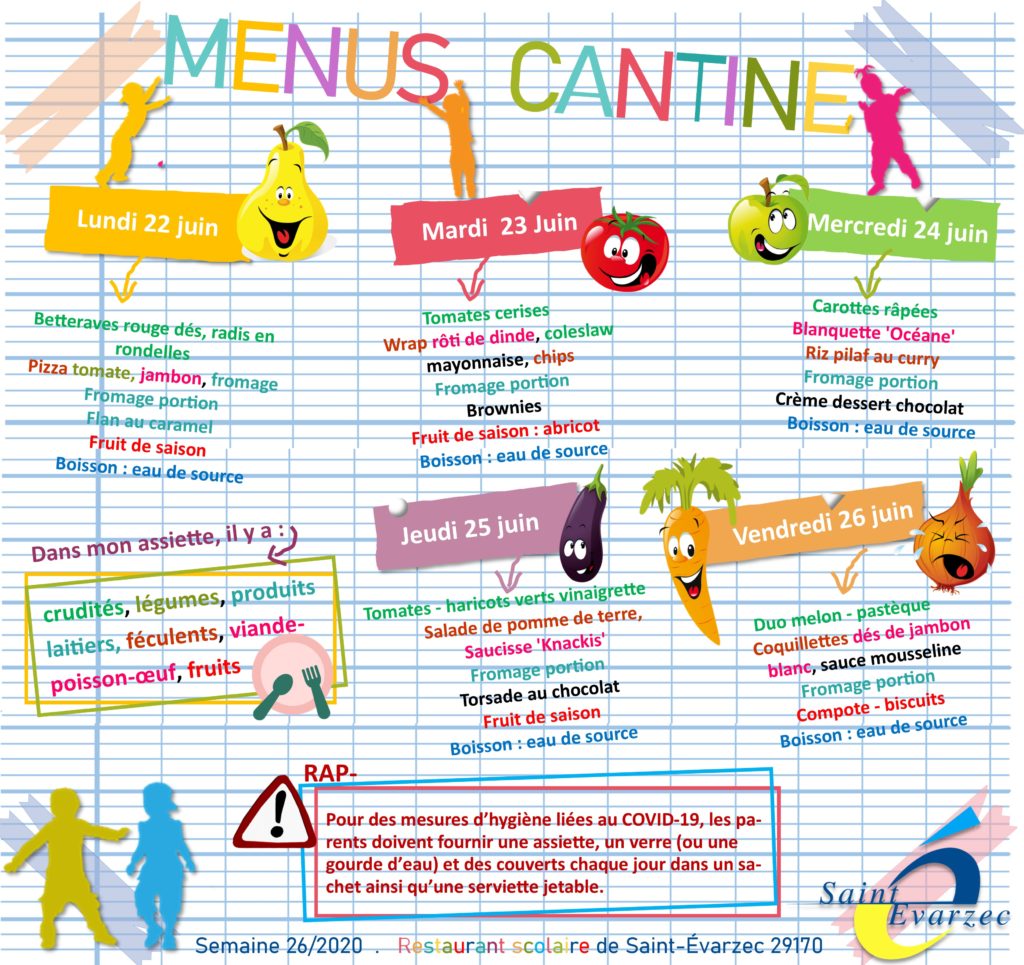 MENUS CANTINE
Lundi 22 juin
Betteraves rouge dés, radis en
rondelles
Pizza tomate, jambon, fromage
Fromage portion
Flan au caramel
Fruit de saison
Boisson : eau de source
Mardi 23 Juin
Tomates cerises
Wrap rôti de dinde, coleslaw
mayonnaise, chips
Fromage portion
Brownies
Fruit de saison : abricot
Boisson : eau de source
Mercredi 24 juin
Carottes râpées
Blanquette 'Océane'
Riz pilaf au curry
Fromage portion
Crème dessert chocolat
Boisson : eau de source
Dans mon assiette, il y a :
crudités, légumes, produits
laitiers, féculents, viande-
poisson-œuf, fruits
Jeudi 25 juin
Tomates - haricots verts vinaigrette
Salade de pomme de terre,
Saucisse 'Knackis'
Fromage portion
Torsade au chocolat
Fruit de saison
Boisson : eau de source
Vendredi 26 juin
Duo melon - pastèque
Coquillettes dés de jambon
blanc, sauce mousseline
Fromage portion
Compote - biscuits
Boisson : eau de source
RAP-
Pour des mesures d'hygiène liées au COVID-19, les pa-
rents doivent fournir une assiette, un verre (ou une
gourde d'eau) et des couverts chaque jour dans un sa-
chet ainsi qu'une serviette jetable.
Saint
Evarzec
Semaine 26/2020 . Restaurant scolaire de Saint-Évarzec 29170